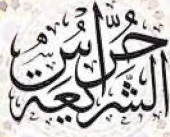 حُرَّاسُ
الشَّرِيعَة